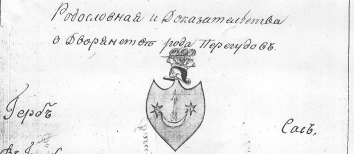 Родословная и Доказательства
о Дворянстве рода Перегудовъ.
Гербъ
Сасъ.